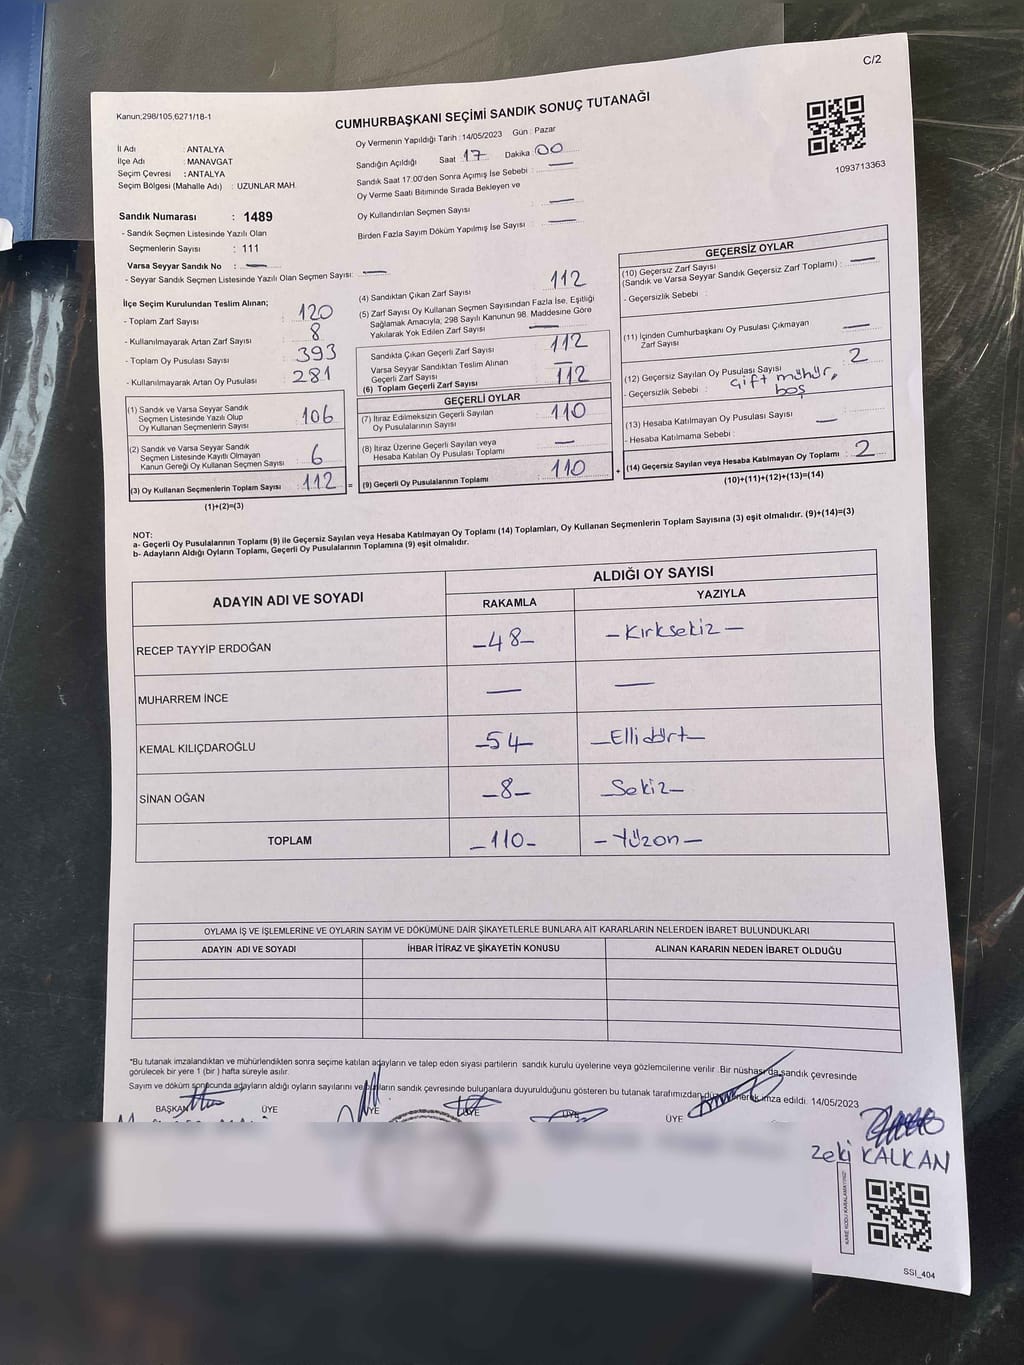 C/2
Kanun;298/105,6271/18-1
CUMHURBAŞKANI SEÇİMİ SANDIK SONUÇ TUTANAĞI
1093713363
İl Adı : ANTALYA
İlçe Adı : MANAVGAT
Seçim Çevresi : ANTALYA
Seçim Bölgesi (Mahalle Adı) : UZUNLAR MAH.
Sandık Numarası : 1489
- Sandık Seçmen Listesinde Yazılı Olan
Seçmenlerin Sayısı : 111
Varsa Seyyar Sandık No : —
- Seyyar Sandık Seçmen Listesinde Yazılı Olan Seçmen Sayısı: —
Oy Vermenin Yapıldığı Tarih : 14/05/2023 Gün : Pazar
Sandığın Açıldığı Saat : 17 Dakika : 00
Sandık Saat 17.00'den Sonra Açımış İse Sebebi : —
Oy Verme Saati Bitiminde Sırada Bekleyen ve
Oy Kullandırılan Seçmen Sayısı : —
Birden Fazla Sayım Döküm Yapılmış İse Sayısı : —
İlçe Seçim Kurulundan Teslim Alınan;
- Toplam Zarf Sayısı : 120
- Kullanılmayarak Artan Zarf Sayısı : 8
- Toplam Oy Pusulası Sayısı : 393
- Kullanılmayarak Artan Oy Pusulası : 281
(1) Sandık ve Varsa Seyyar Sandık
Seçmen Listesinde Yazılı Olup
Oy Kullanan Seçmenlerin Sayısı : 106
(2) Sandık ve Varsa Seyyar Sandık
Seçmen Listesinde Kayıtlı Olmayan
Kanun Gereği Oy Kullanan Seçmen Sayısı : 6
(3) Oy Kullanan Seçmenlerin Toplam Sayısı : 112 =
(1)+(2)=(3)
(4) Sandıktan Çıkan Zarf Sayısı : 112
(5) Zarf Sayısı Oy Kullanan Seçmen Sayısından Fazla İse, Eşitliği
Sağlamak Amacıyla; 298 Sayılı Kanunun 98. Maddesine Göre
Yakılarak Yok Edilen Zarf Sayısı : —
Sandıkta Çıkan Geçerli Zarf Sayısı : 112
Varsa Seyyar Sandıktan Teslim Alınan
Geçerli Zarf Sayısı : —
(6) Toplam Geçerli Zarf Sayısı : 112
GEÇERLİ OYLAR
(7) İtiraz Edilmeksizin Geçerli Sayılan
Oy Pusulasının Sayısı : 110
(8) İtiraz Üzerine Geçerli Sayılan veya
Hesaba Katılan Oy Pusulası Toplamı : —
(9) Geçerli Oy Pusulalarının Toplamı : 110 +
GEÇERSİZ OYLAR
(10) Geçersiz Zarf Sayısı
(Sandık ve Varsa Seyyar Sandık Geçersiz Zarf Toplamı) : —
- Geçersizlik Sebebi :
(11) İçinden Cumhurbaşkanı Oy Pusulası Çıkmayan
Zarf Sayısı : —
(12) Geçersiz Sayılan Oy Pusulası Sayısı : 2
- Geçersizlik Sebebi : çift mühür,
boş
(13) Hesaba Katılmayan Oy Pusulası Sayısı : —
- Hesaba Katılmama Sebebi :
(14) Geçersiz Sayılan veya Hesaba Katılmayan Oy Toplamı : 2
(10)+(11)+(12)+(13)=(14)
NOT:
a- Geçerli Oy Pusulalarının Toplamı (9) ile Geçersiz Sayılan veya Hesaba Katılmayan Oy Toplamı (14) Toplamları, Oy Kullanan Seçmenlerin Toplam Sayısına (3) eşit olmalıdır. (9)+(14)=(3)
b- Adayların Aldığı Oyların Toplamı, Geçerli Oy Pusulalarının Toplamına (9) eşit olmalıdır.
ADAYIN ADI VE SOYADI ALDIĞI OY SAYISI
RAKAMLA YAZIYLA
RECEP TAYYİP ERDOĞAN —48— —Kırksekiz—
MUHARREM İNCE — —
KEMAL KILIÇDAROĞLU —54— —Ellidört—
SİNAN OĞAN —8— —Sekiz—
TOPLAM —110— —Yüzon—
OYLAMA İŞ VE İŞLEMLERİNE VE OYLARIN SAYIM VE DÖKÜMÜNE DAİR ŞİKAYETLERLE BUNLARA AİT KARARLARIN NELERDEN İBARET BULUNDUKLARI
ADAYIN ADI VE SOYADI İHBAR İTİRAZ VE ŞİKAYETİN KONUSU ALINAN KARARIN NEDEN İBARET OLDUĞU
*Bu tutanak imzalandıktan ve mühürlendikten sonra seçime katılan adayların ve talep eden siyasi partilerin sandık kurulu üyelerine veya gözlemcilerine verilir .Bir nüshası da sandık çevresinde
görülecek bir yere 1 (bir ) hafta süreyle asılır.
Sayım ve döküm sonucunda adayların aldığı oyların sayılarını ve bunların sandık çevresinde bulunanlara duyurulduğunu gösteren bu tutanak tarafımızdan imza edildi. 14/05/2023
BAŞKAN ÜYE ÜYE ÜYE ÜYE ÜYE
Zeki KALKAN
KARE KODU KARALAMAYINIZ!
SSI_404